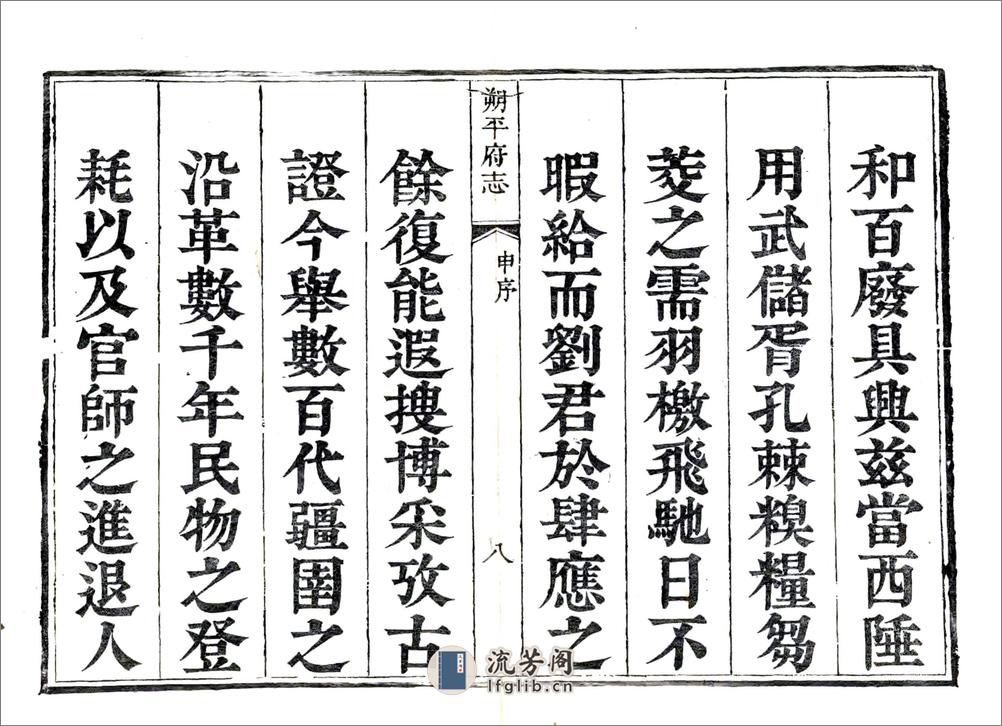 和百廢具興兹當西陲
用武儲胥孔棘糗糧芻
茭之需羽檄飛馳日不
暇給而劉君於肆應之
朔平府志
申序
八
餘復能遐搜博采攷古
證今舉數百代疆圉之
沿革數千年民物之登
耗以及官師之進退人
流芳阁
lfglib.cn